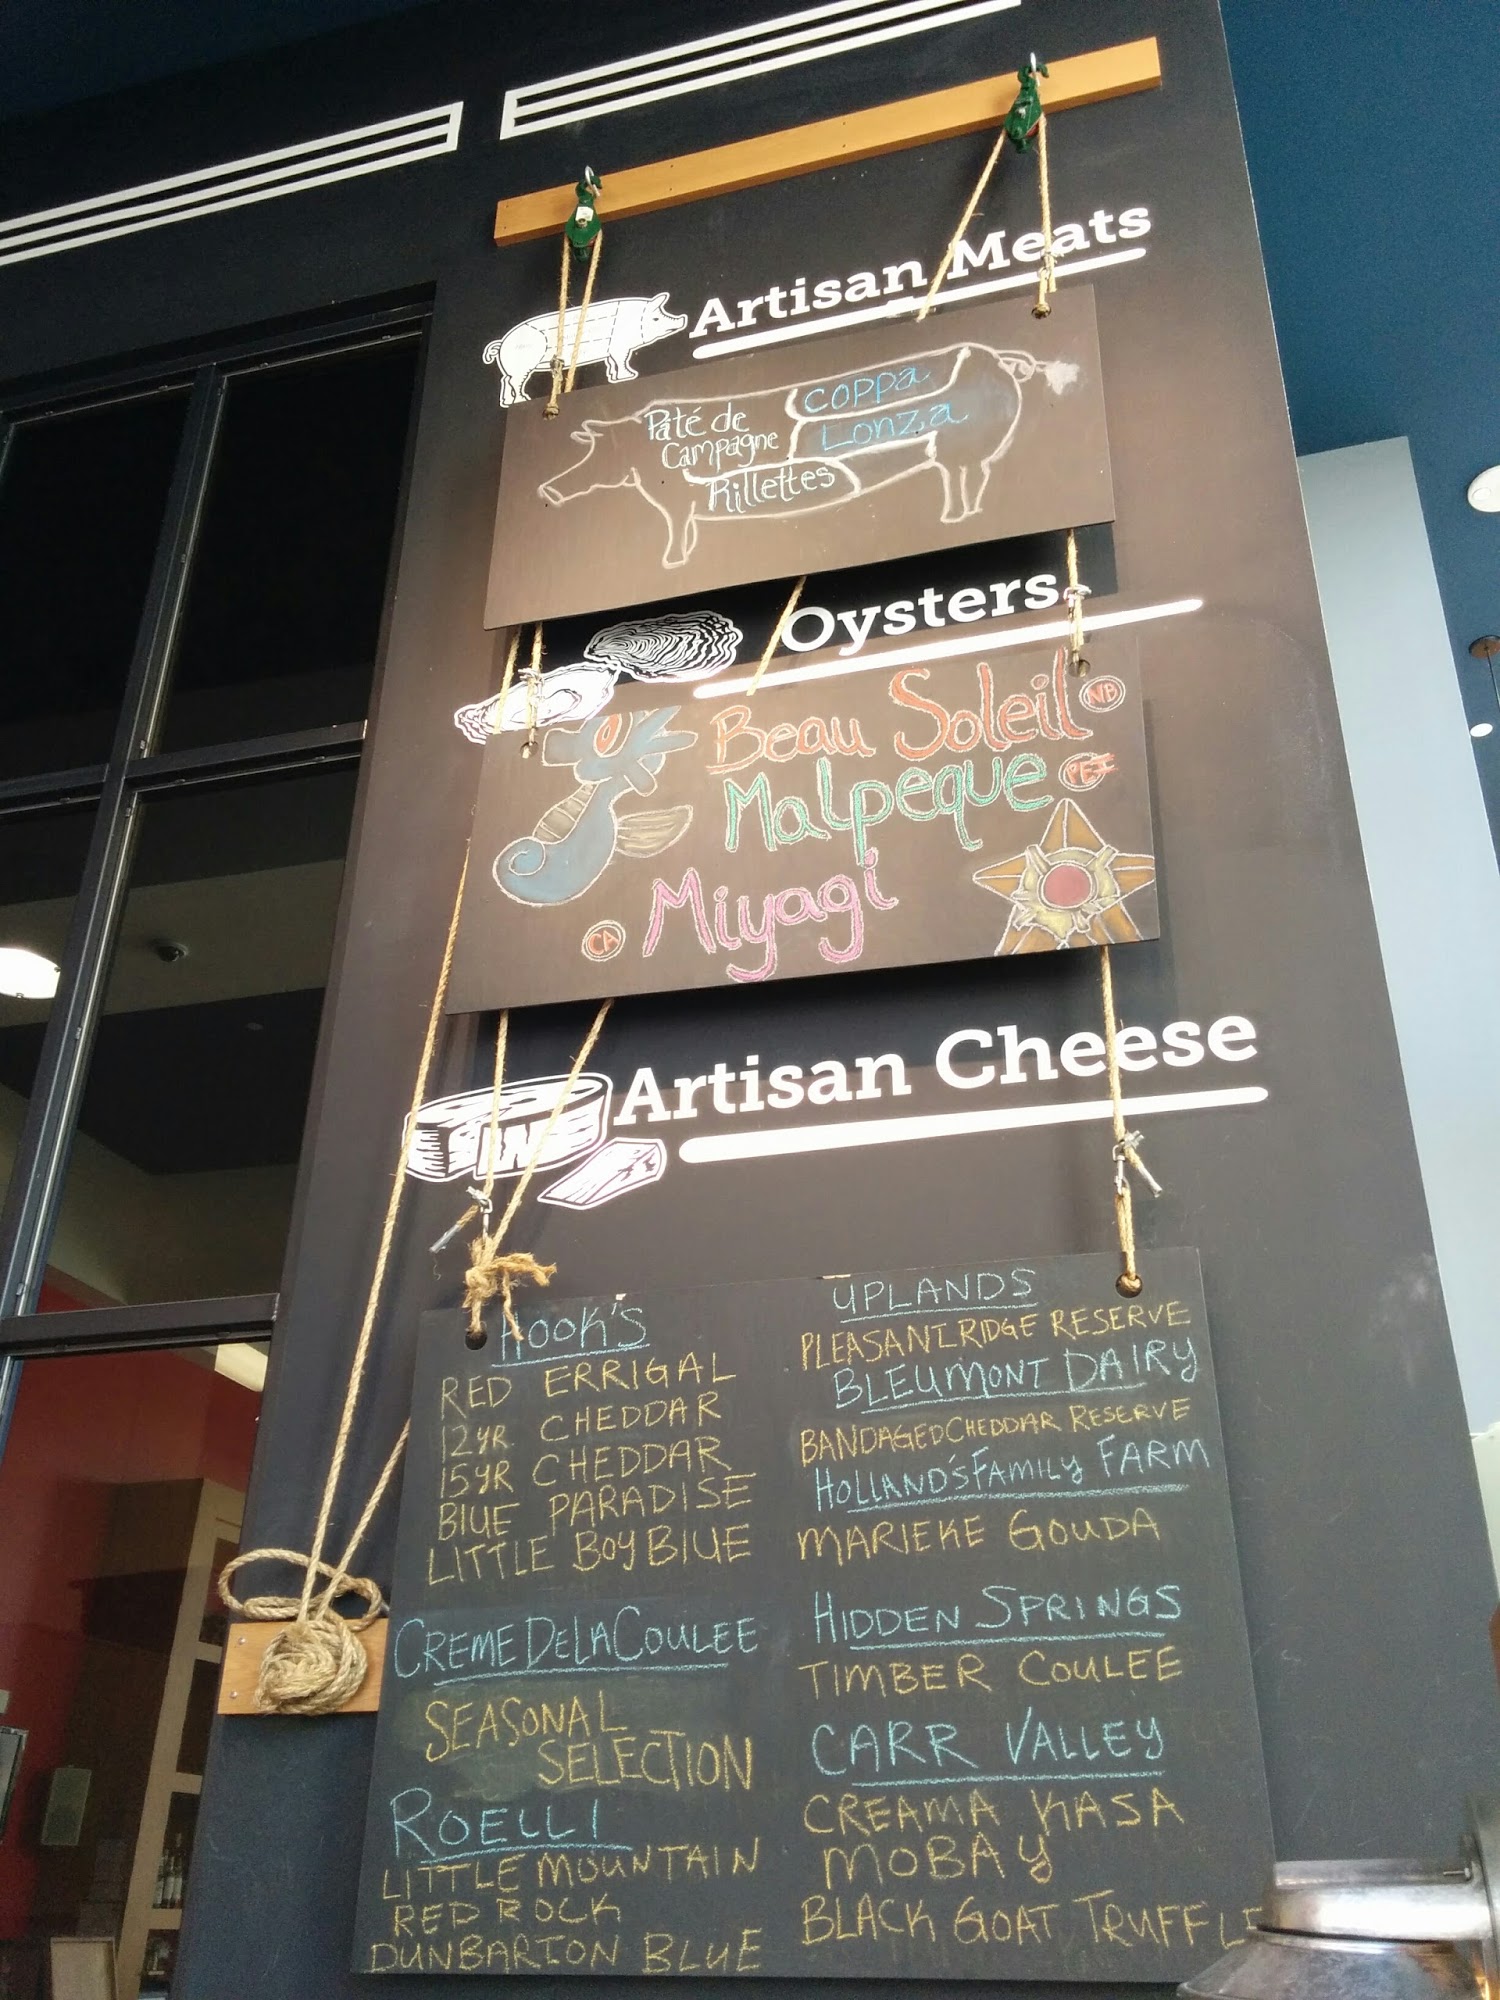 Artisan Meats
Pâté de
Campagne
Rillettes
COPPa
Lonza
Oysters
Beau Soleil NB
Malpeque PEI
Miyagi
CA
Artisan Cheese
HOOK'S
RED ERRIGAL
12YR CHEDDAR
15YR CHEDDAR
BLUE PARADISE
LITTLE BOY BLUE
CREME DE LA COULEE
SEASONAL
SELECTION
ROELLI
LITTLE MOUNTAIN
RED ROCK
DUNBARTON BLUE
UPLANDS
PLEASANT RIDGE RESERVE
BLEUMONT DAIRY
BANDAGED CHEDDAR RESERVE
HOLLAND'S FAMILY FARM
MARIEKE GOUDA
HIDDEN SPRINGS
TIMBER COULEE
CARR VALLEY
CREAMA KASA
MOBAY
BLACK GOAT TRUFFLE